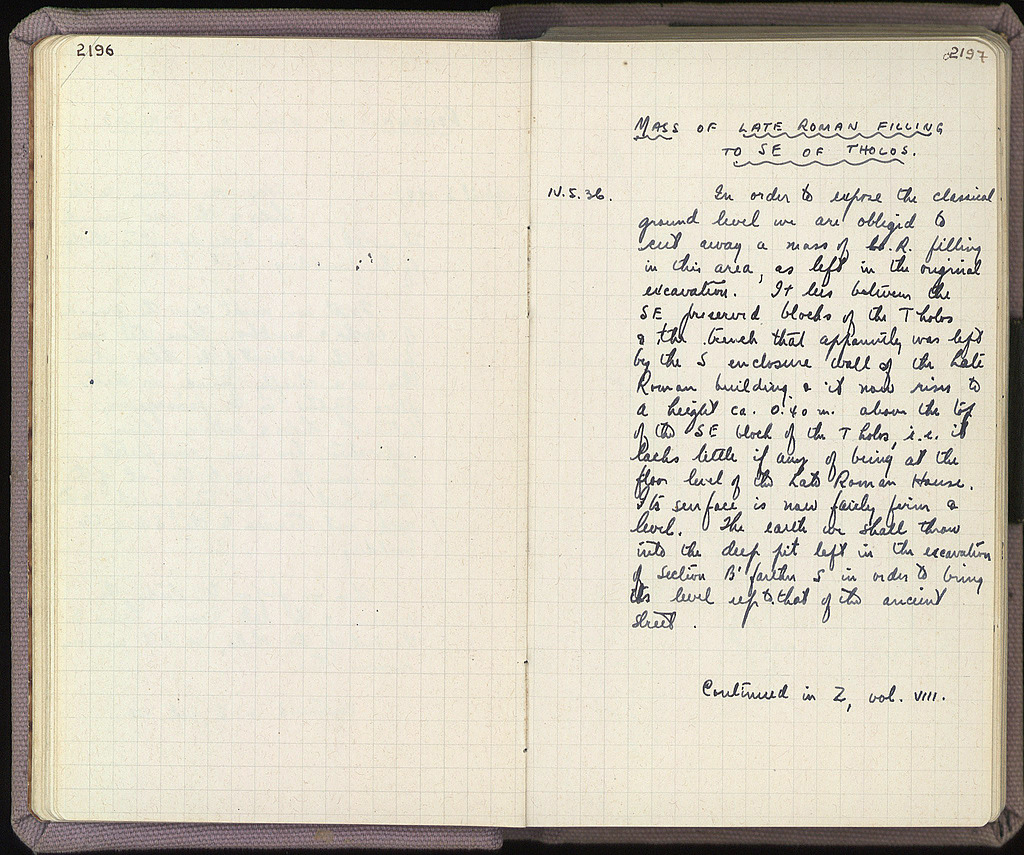 2196
2197
MASS OF LATE ROMAN FILLING
TO SE OF THOLOS.
IV.5.36.
In order to expose the classical
ground level we are obliged to
cut away a mass of L.R. filling
in this area, as left in the original
excavation. It lies between the
SE preserved blocks of the Tholos
& the trench that apparently was left
by the S enclosure wall of the Late
Roman building & it now rises to
a height ca. 0.40 m. above the top
of the SE block of the Tholos, i.e. it
lacks little if any of being at the
floor level of the Late Roman House.
Its surface is now fairly firm &
level. The earth we shall throw
into the deep pit left in the excavation
of Section B' farther S in order to bring
its level up to that of the ancient
street.
Continued in Z, vol. VIII.